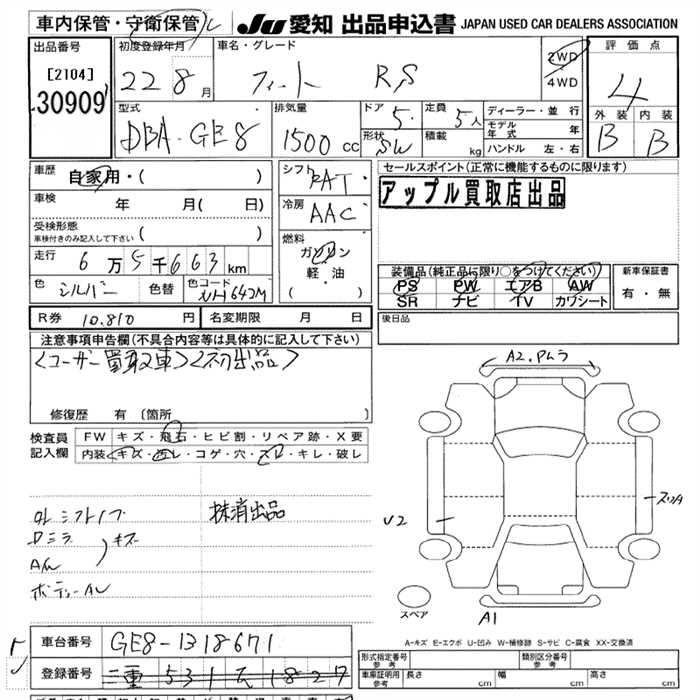 車内保管・守衛保管
JU 愛知 出品申込書 JAPAN USED CAR DEALERS ASSOCIATION
出品番号
[2104]
30909
初度登録年月
22 8月
車名・グレード
フィット RS
2WD
4WD
評価点
4
外装 内装
B B
型式
DBA-GE8
排気量
1500 cc
ドア
5
定員
5人
形状
SW
積載
kg
ディーラー・並行
モデル年式 年
ハンドル 左・右
車歴
自家用・( )
車検 年 月( 日)
受検形態
車検付きのみ記入して下さい ( )
走行 6万5千663km
色 シルバー 色替 色コード NH642M
シフト
FAT
冷房
AAC
燃料
ガソリン
軽・油
( )
セールスポイント(正常に機能するものに限ります)
アップル買取店出品
装備品(純正品に限り○をつけてください)
PS PW エアB AW
SR ナビ TV カワシート
新車保証書
有・無
R券 10.810 円 名変期限 月 日
後日品
注意事項申告欄(不具合内容等は具体的に記入して下さい)
<ユーザー買取車><初出品>
修復歴 有 〔箇所
検査員
記入欄
FW キズ・飛石・ヒビ割・リペア跡・X要
内装 キズ・汚レ・コゲ・穴・スレ・キレ・破レ
シフトノブ
Dミラ
キズ
AW
抹消出品
A2.Pムラ
U2
A1
スペア
A-キズ E-エクボ U-凹み W-補修跡 S-サビ C-腐食 XX-交換済
車台番号 GE8-1318671
登録番号
形式指定番号
参考
類別区分番号
参考
車庫証明用
参考
長さ 幅 高さ